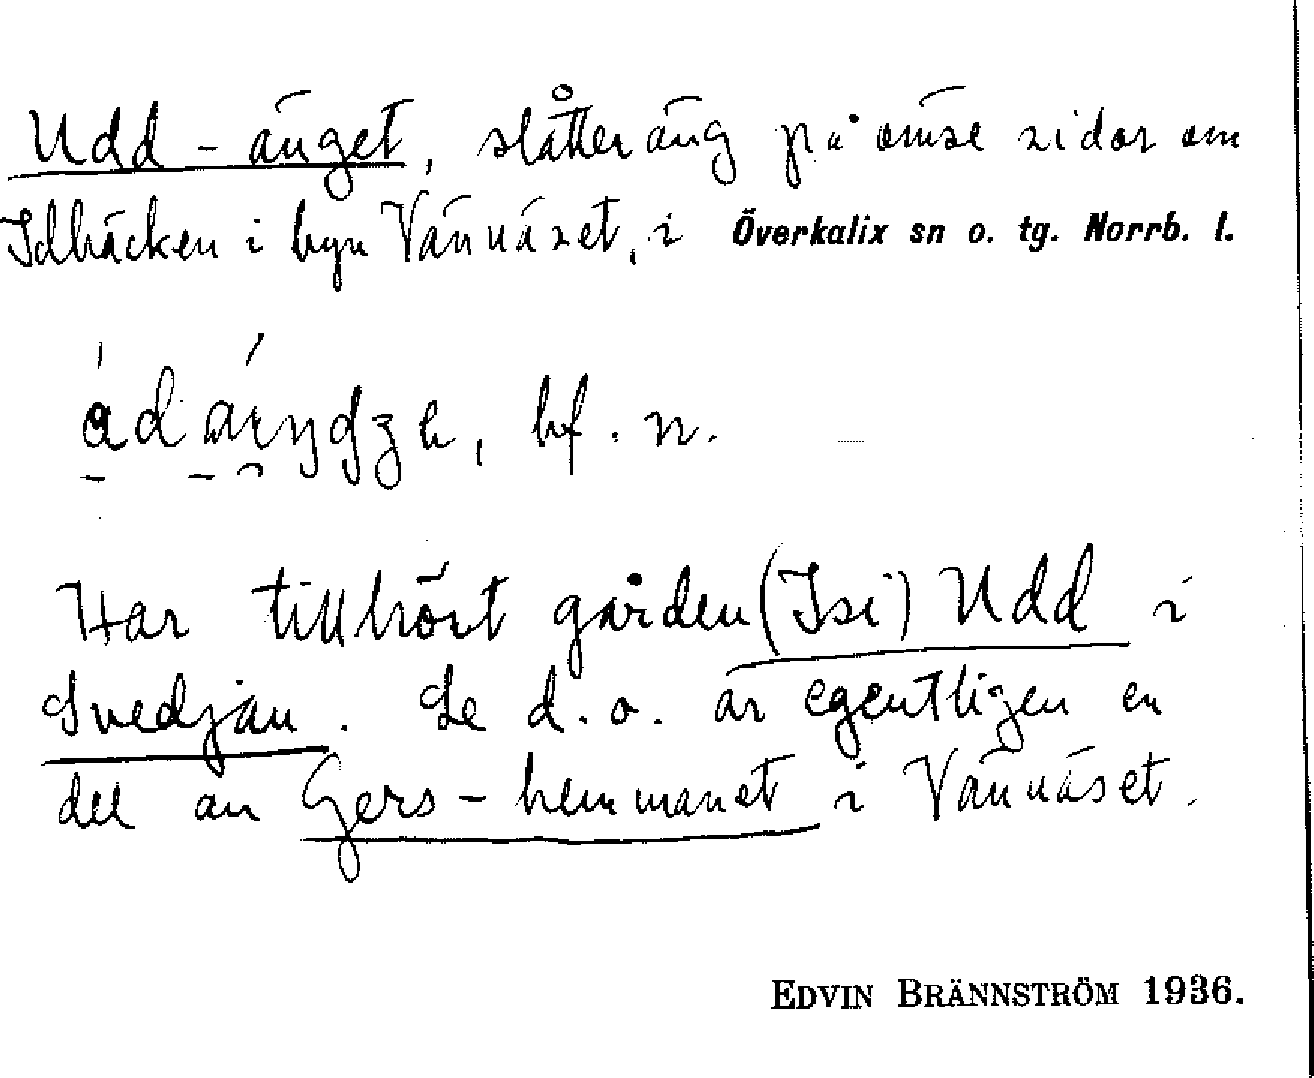 Udd-änget, slåtteräng på ömse sidor om
Idbäcken i byn Vännäset, i Överkalix sn o. tg. Norrb. l.
bf. n.
Har tillhört gården (Isi) Udd i
Svedjan. Se d. o. är egentligen en
del av Gers-hemmanet i Vännäset.
EDVIN BRÄNNSTRÖM 1936.